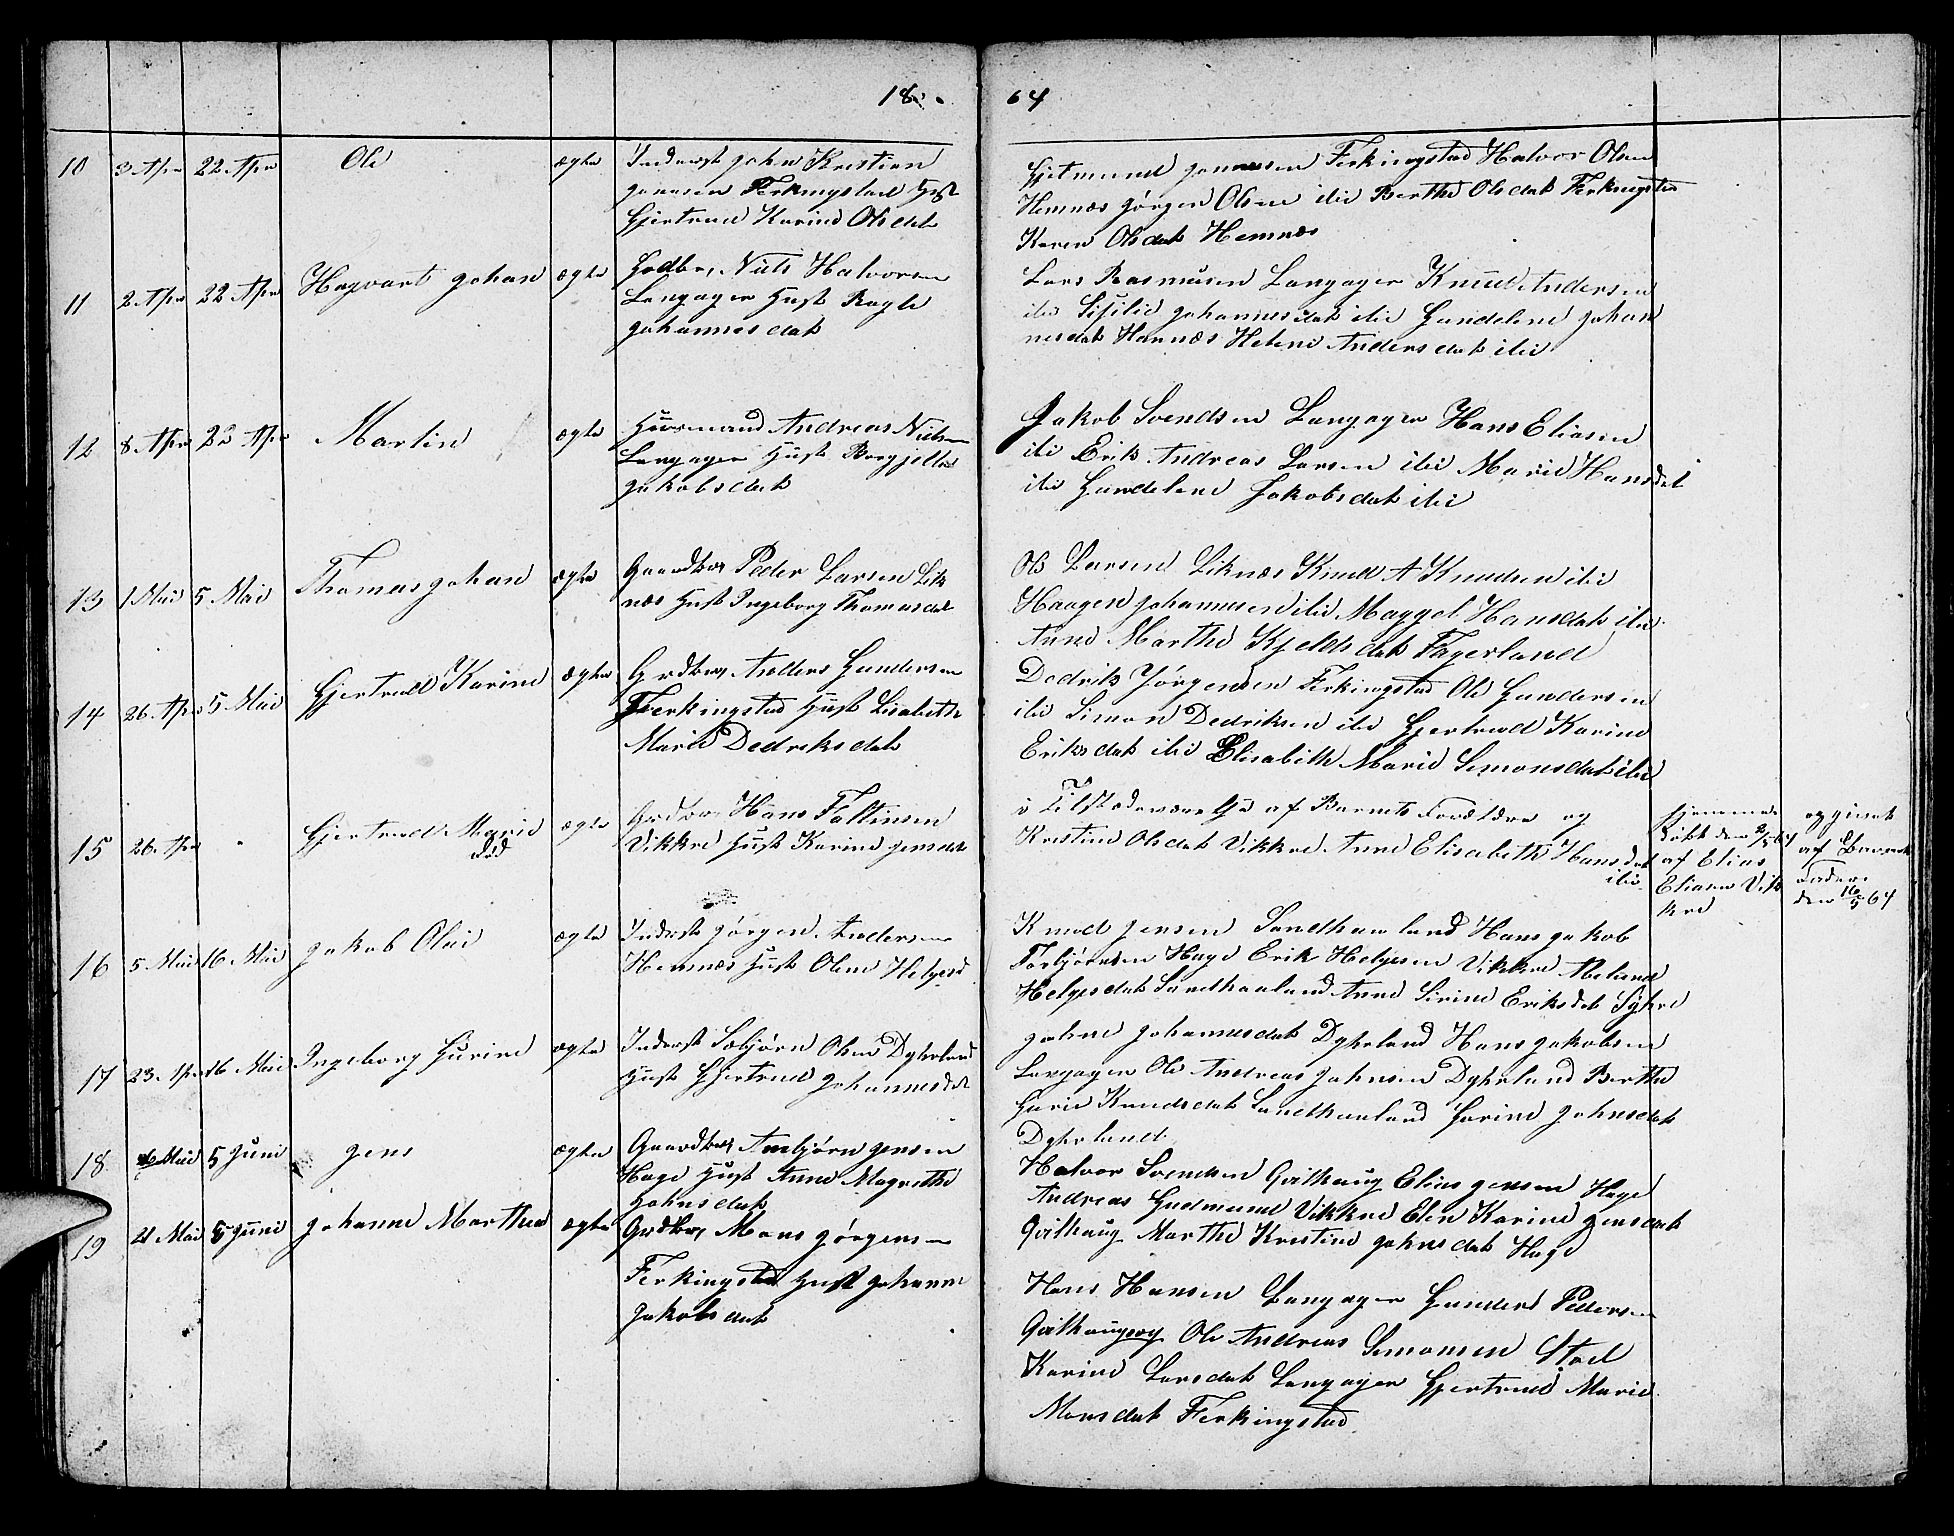 18 64
10 3 Apr 22 Apr Ole ægte Inderst John Kristian
Jonnesen Ferkingstad Hst
Gjertrud Karine Olsdat
Gjetmund Jonnesen Ferkingstad Halvor Olsen
Hemnæs Jørgen Olsen ibid Berthe Olsdat Ferkingstad
Karen Olsdat Hemnæs
11 2 Apr 22 Apr Hagvart Johan ægte Grdbr, Niels Halvorsen
Langager Hust Ragle
Johannesdat
Lars Rasmusen Langager Knud Andersen
ibid Sisilie Johannesdat ibid Gundeline Johan
nesdat Hannæs Helene Andersdat ibid
12 8 Apr 22 Apr Martin ægte Huusmand Andreas Nielsen
Langager Hust Borgjelle
Jakobsdat
Jakob Svendsen Langager Hans Eliasen
ibid Erik Andreas Larsen ibid Marie Hansdat
ibid Gundeline Jakobsdat ibid
13 1 Mai 5 Mai Thomas Johan ægte Gaardbr Peder Larsen Lik
næs Hust Ingeborg Thomasdat
Ole Larsen Liknæs Knud A Knudsen ibid
Haagen Johannesen ibid Maggel Hansdat ibid
Anne Marthe Kjeldsdat Fagerland
14 26 Apr 5 Mai Gjertrud Karine ægte Grdbr, Anders Gundersen
Ferkingstad Hust Lisabethe
Marie Dedriksdat
Dedrik Jørgensen Ferkingstad Ole Gundersen
ibid Simon Dedriksen ibid Gjertrud Karine
Eriksdat ibid Elisabeth Marie Simonsdat ibid
15 26 Apr Gjertrud Marie
død
ægte Grdbr, Hans Faltinsen
Vikkre Hust Karine Jensdat
i Tilstædeværelse af Barnets Forældre og
Kristine Olsdat Vikkre Anne Elisabeth Hansdat
ibid
hjemme
døbt den 2/5 64
af Elias
Eliasen Vik
kre
og
af Barnets
Fader
den 16/5 64
16 5 Mai 16 Mai Jakob Olai ægte Inderst Jørgen Andersen
Hemnæs Hust Oline Helgesd
Knud Jensen Sandhaaland Hans Jakob
Torbjørnsen Hage Erik Helgesen Vikkre
Helgesdat Sandhaaland Anne Sirine Eriksdat Syhre
17 23 Apr 16 Mai Ingeborg Gurine ægte Inderst Sebjørn Olsen Dyhrland
Hust Gjertrud Johannesdat
Johne Johannesdat Dyhrland Hans Jakobsen
Langager Ole Andreas Johnsen Dyhrland Berthe
Gurie Knudsdat Sandhaaland Gurine Johnsdat
Dyhrland
18 Mai 5 Juni Jens ægte Gaardbr, Ansbjørn Jensen
Hage Hust Anne Magrethe
Johnsdat
Halvor Svendsen Qvithaug Elias Jensen Hage
Andreas Gudmund Vikkre Elen Karine Jensdat
Qvithaug Marthe Kristine Johnsdat Hage
19 21 Mai 5 Juni Johanne Marthea ægte Grdbr, Mons Jørgensen
Ferkingstad Hust Johanne
Jakobsdat
Hans Hansen Langager Gunder Pedersen
Qvithaug og Ole Andreas Simonsen Stoel
Karine Larsdat Langager Gjertrud Marie
Monsdat Ferkingstad